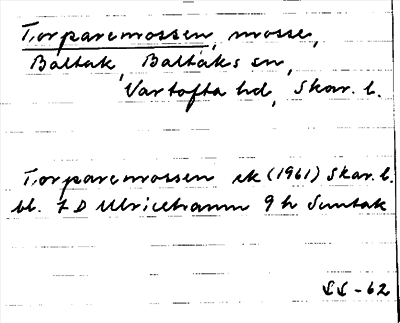 Torparemossen, mosse,
Baltak, Baltaks sn,
Vartofta hd, Skar. l.
Torparemossen ek (1961) Skar. l.
bl. 7 D Ulricehamn 9 h Suntak
LL - 62